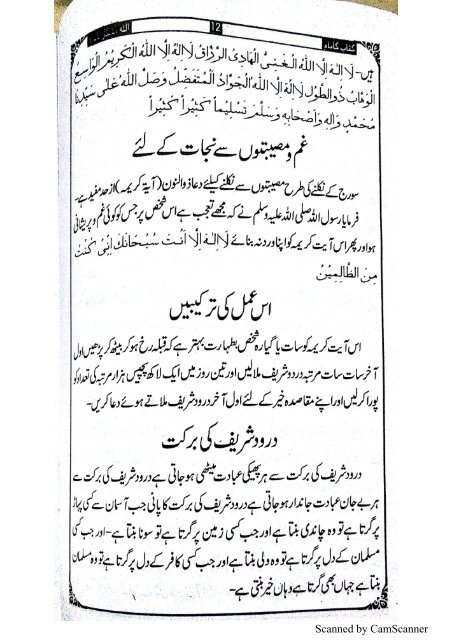 12
ہیں۔ لَا اِلٰہَ اِلَّا اللّٰہُ الْغَنِیُّ الْھَادِیُ الرَّزَّاقُ لَا اِلٰہَ اِلَّا اللّٰہُ الْکَرِیْمُ الْوَاسِعُ
الْوَھَّابُ ذُوالطَّوْلِ لَا اِلٰہَ اِلَّا اللّٰہُ الْجَوَّادُ الْمُتَفَضِّلُ وَصَلَّ اللّٰہُ عَلٰی سَیِّدِنَا
مُحَمَّدٍ وَّاٰلِہٖ وَاَصْحَابِہٖ وَسَلَّمَ تَسْلِیْماً کَثِیْراً کَثِیْراً
غم و مصیبتوں سے نجات کے لئے
سورج کے نکلنے کی طرح مصیبتوں سے نکلنے کیلئے دعا ذوالنون (آیۃ کریمہ) ازحد مفید ہے۔
فرمایا رسول اللہ صلی اللہ علیہ وسلم نے کہ مجھے تعجب ہے اس شخص پر جس کو کوئی غم و پریشانی
ہو اور پھر اس آیت کریمہ کو اپنا ورد نہ بنائے لَا اِلٰہَ اِلَّا اَنْتَ سُبْحَانَکَ اِنِّیْ کُنْتُ
مِنَ الظَّالِمِیْنَ
اس عمل کی ترکیبیں
اس آیت کریمہ کو سات یا گیارہ شخص بطہارت بہتر ہے کہ قبلہ رخ ہو کر بیٹھ کر پڑھیں اول
آخر سات سات مرتبہ درود شریف ملالیں اور تین روز میں ایک لاکھ پچیس ہزار مرتبہ کی تعداد کو
پورا کرلیں اور اپنے مقاصدہ خیر کے لئے اول آخر درود شریف ملاتے ہوئے دعا کریں۔
درود شریف کی برکت
درود شریف کی برکت سے ہر پھیکی عبادت میٹھی ہوجاتی ہے درود شریف کی برکت سے
ہر بے جان عبادت جاندار ہوجاتی ہے درود شریف کی برکت کا پانی جب آسمان سے کسی پہاڑ
پر گرتا ہے تو وہ چاندی بنتا ہے اور جب کسی زمین پر گرتا ہے تو سونا بنتا ہے۔ اور جب کسی
مسلمان کے دل پر گرتا ہے تو وہ ولی بنتا ہے اور جب کسی کافر کے دل پر گرتا ہے تو وہ مسلمان
بنتا ہے جہاں بھی گرتا ہے وہاں خیر بنتی ہے۔
Scanned by CamScanner